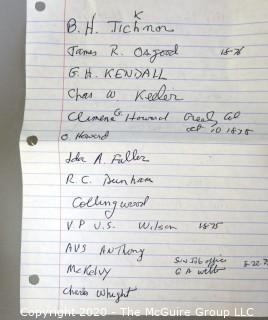 K
B. H. Tichnor
James R. Osgood 1878
G. H. KENDALL
Chas W. Keeler
Climene G. Howard Greely Col
Oct 10 1878
O. Howard
Ida A. Fuller
R. C. Dunham
Collingwood
V. P U.S. Wilson 1875
AVS ANThony
McKelvy
Charles Wright
Copyright 2020 - The McGuire Group LLC